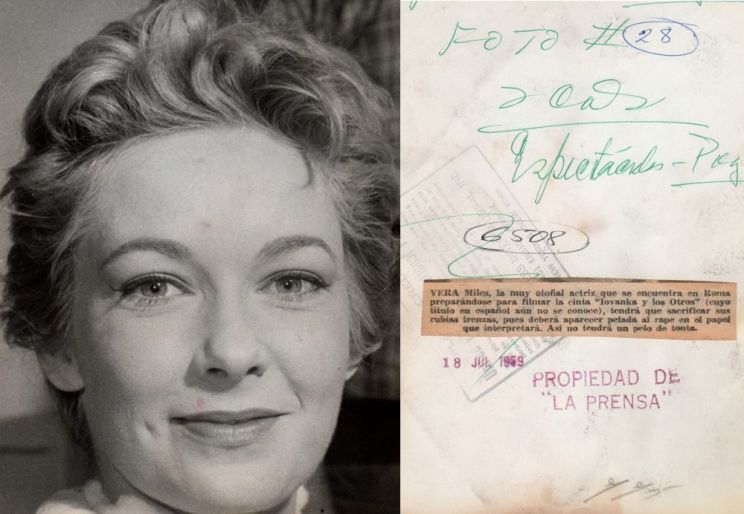 FOTO # 28
2 cols
Espectáculos - Pág
6508
VERA Miles, la muy otoñal actriz que se encuentra en Roma
preparándose para filmar la cinta "Iovanka y los Otros" (cuyo
título en español aún no se conoce), tendrá que sacrificar sus
rubias trenzas, pues deberá aparecer pelada al rape en el papel
que interpretará. Así no tendrá un pelo de tonta.
18 JUL 1959
PROPIEDAD DE
"LA PRENSA"